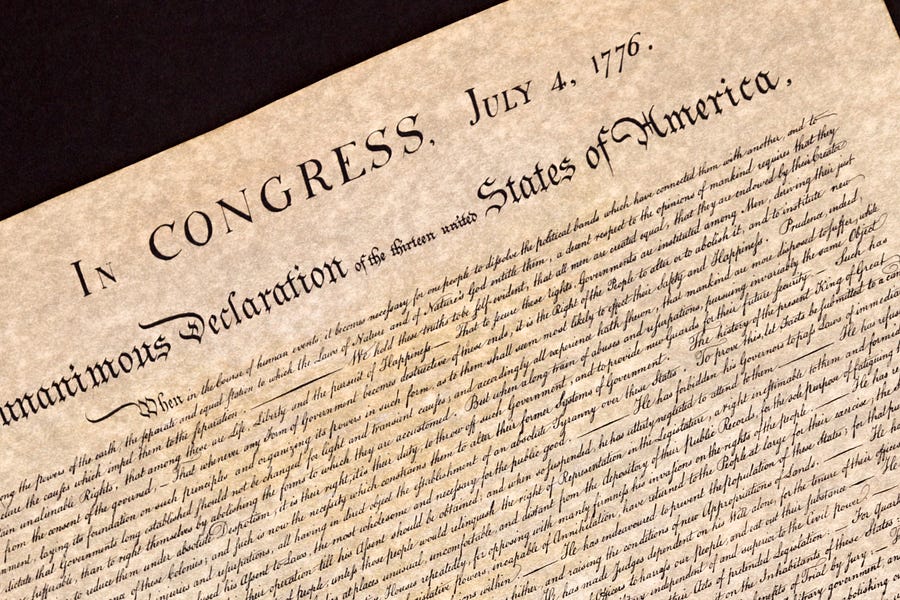 IN CONGRESS, JULY 4, 1776.
unanimous Declaration of the thirteen united States of America,
When in the Course of human events, it becomes necessary for one people to dissolve the political bands which have connected them with another, and to
ong the powers of the earth, the separate and equal station to which the Laws of Nature and of Nature's God entitle them, a decent respect to the opinions of mankind requires that they
the causes which impel them to the separation. We hold these truths to be self-evident, that all men are created equal, that they are endowed by their Creato
unalienable Rights, that among these are Life, Liberty and the pursuit of Happiness.— That to secure these rights, Governments are instituted among Men, deriving their just
from the consent of the governed,— That whenever any Form of Government becomes destructive of these ends, it is the Right of the People to alter or to abolish it, and to institute new
ment, laying its foundation on such principles and organizing its powers in such form, as to them shall seem most likely to effect their Safety and Happiness. Prudence, indeed
dictate that Governments long established should not be changed for light and transient causes; and accordingly all experience hath shewn, that mankind are more disposed to suffer, while
sufferable, than to right themselves by abolishing the forms to which they are accustomed. But when a long train of abuses and usurpations, pursuing invariably the same Object
to reduce them under absolute Despotism, it is their right, it is their duty, to throw off such Government, and to provide new Guards for their future security.— Such has
of these Colonies; and such is now the necessity which constrains them to alter their former Systems of Government. The history of the present King of Great
injuries and usurpations, all having in direct object the establishment of an absolute Tyranny over these States. To prove this, let Facts be submitted to a
his Assent to Laws, the most wholesome and necessary for the public good. He has forbidden his Governors to pass Laws of immedia
their operation till his Assent should be obtained; and when so suspended, he has utterly neglected to attend to them. He has refus
people, unless those people would relinquish the right of Representation in the Legislature, a right inestimable to them and formi
at places unusual, uncomfortable, and distant from the depository of their public Records, for the sole purpose of fatiguing
Houses repeatedly, for opposing with manly firmness his invasions on the rights of the people. He has
Legislative powers, incapable of Annihilation, have returned to the People at large for their exercise; the
He has endeavoured to prevent the population of these States; for that pur
hither, and raising the conditions of new Appropriations of Lands. He h
He has made Judges dependent on his Will alone, for the tenure of their
Officers to harrass our people, and eat out their substance. He
independent of and superior to the Civil power.
their Acts of pretended Legislation: For Qua
on the Inhabitants of these States
benefits of Trial by Jury:
arbitrary government,